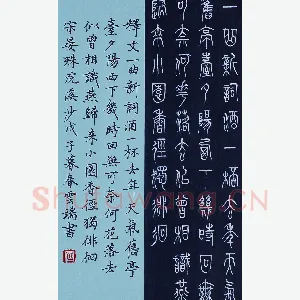 一曲新詞酒一杯去年天氣
舊亭臺夕陽西下幾時回無
可奈何花落去似曾相識燕
歸來小園香徑獨徘徊
釋文一曲新詞酒一杯去年天氣舊亭
臺夕陽西下幾時回無可奈何花落去
似曾相識燕歸來小園香徑獨徘徊
宋晏殊浣溪沙戊子葉春書
Shufawang.cn